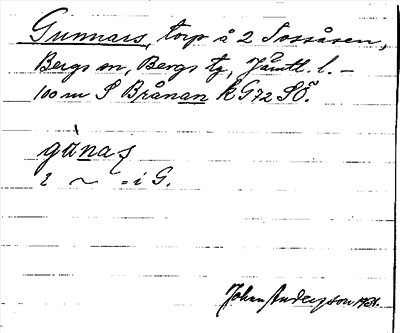 Gunnars, torp å 2 Tossåsen,
Bergs sn, Bergs tg, Jämtl. l. –
100 m S Brånan k G72 SÖ.
gànaʃ
2 ~ = i G.
Johan Anderzson 1931.